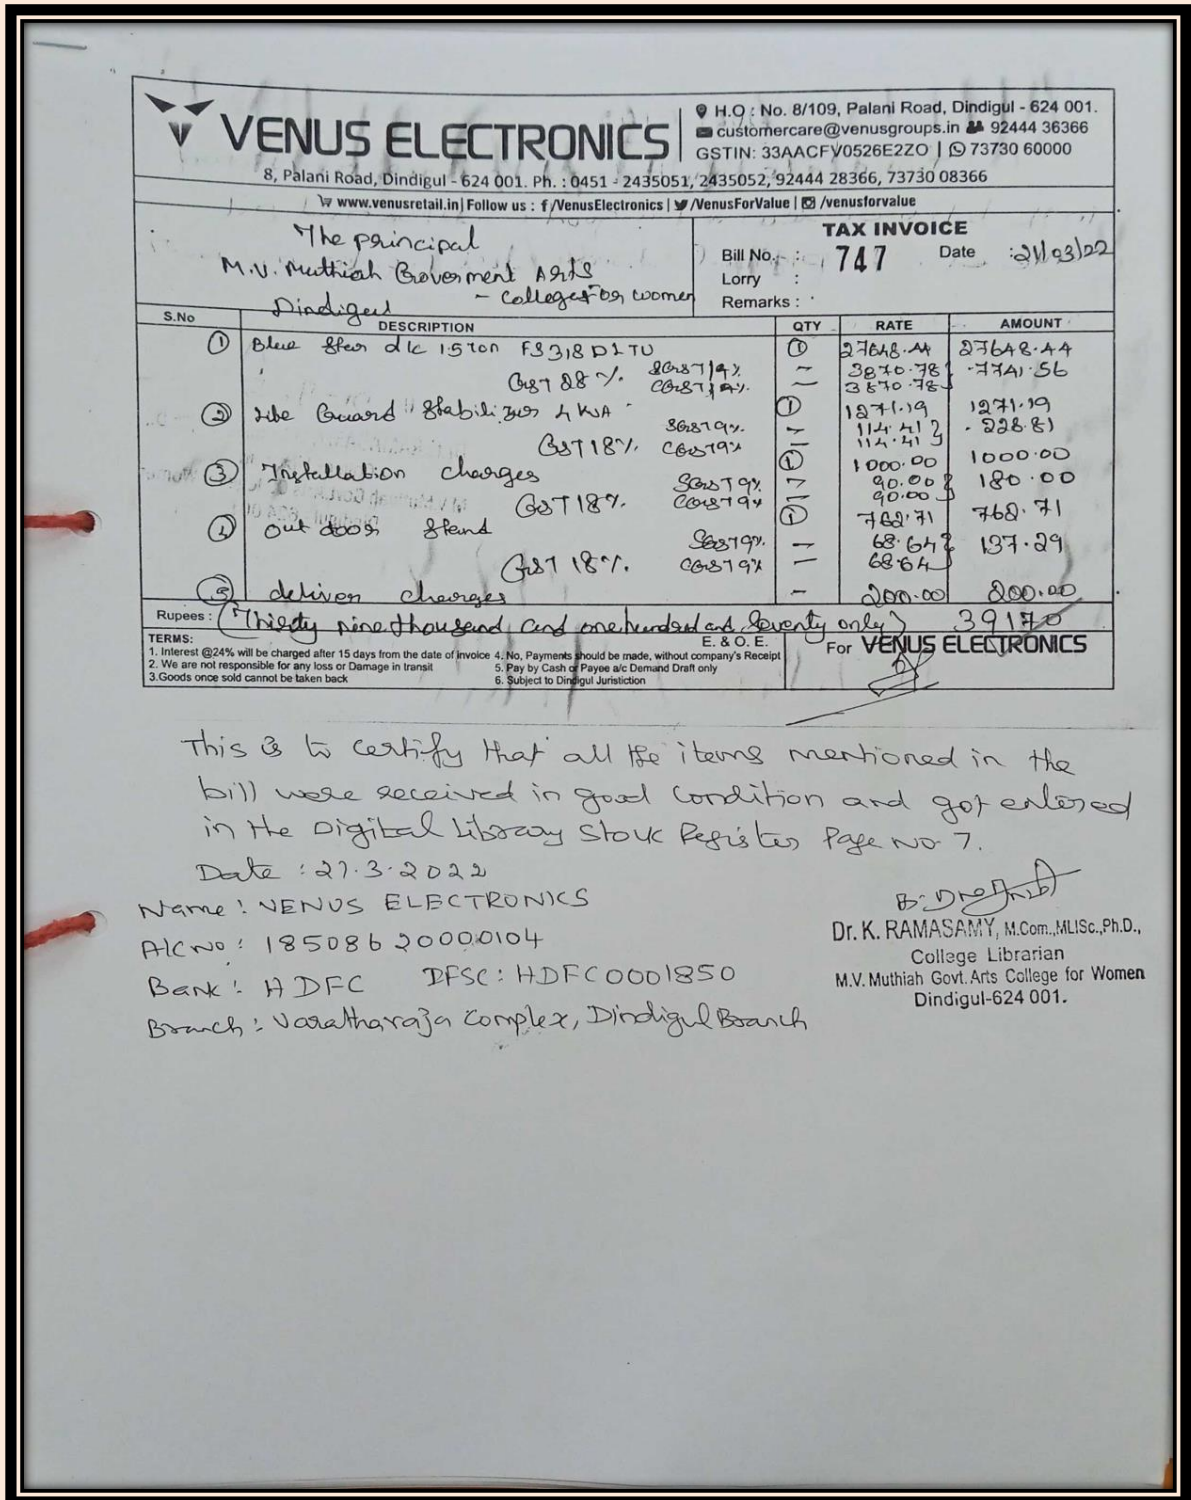 VENUS ELECTRONICS
H.O : No. 8/109, Palani Road, Dindigul - 624 001.
customercare@venusgroups.in 92444 36366
GSTIN: 33AACFV0526E2ZO | 73730 60000
8, Palani Road, Dindigul - 624 001. Ph. : 0451 - 2435051, 2435052, 92444 28366, 73730 08366
www.venusretail.in| Follow us : f/VenusElectronics | /VenusForValue | /venusforvalue
The principal
M.V. Muthiah Goverment Arts
- College for women
Dindigul
TAX INVOICE
Bill No. : 747 Date :21/03/22
Lorry :
Remarks :
S.No DESCRIPTION QTY RATE AMOUNT
① Blue Star a/c 1.5 Ton FS318DLTU ① 27648.44 27648.44
GST 28% SGST 14% — 3870.78 7741.56
CGST 14% — 3870.78
② Guard Stabilizer 4 KVA ① 1271.19 1271.19
SGST 9% — 114.41 228.81
GST 18% CGST 9% — 114.41
③ Installation charges ① 1000.00 1000.00
SGST 9% — 90.00 180.00
GST 18% CGST 9% — 90.00
④ out door Stand ① 762.71 762.71
SGST 9% — 68.64 137.29
GST 18% CGST 9% — 68.64
⑤ deliver charges — 200.00 200.00
Rupees : (Thirdy nine thousand and one hundred and Seventy only) 39170
TERMS: E. & O. E.
1. Interest @24% will be charged after 15 days from the date of invoice
2. We are not responsible for any loss or Damage in transit
3.Goods once sold cannot be taken back
4. No, Payments should be made, without company's Receipt
5. Pay by Cash or Payee a/c Demand Draft only
6. Subject to Dindigul Juristiction
For VENUS ELECTRONICS
This is to certify that all the items mentioned in the
bill were received in good condition and got entered
in the Digital Library Stock Register Page No 7.
Date : 21.3.2022
Name : VENUS ELECTRONICS
A/C No : 18508620000104
Bank : HDFC IFSC : HDFC0001850
Branch : Varatharaja Complex, Dindigul Branch
Dr. K. RAMASAMY, M.Com.,MLISc.,Ph.D.,
College Librarian
M.V. Muthiah Govt. Arts College for Women
Dindigul-624 001.